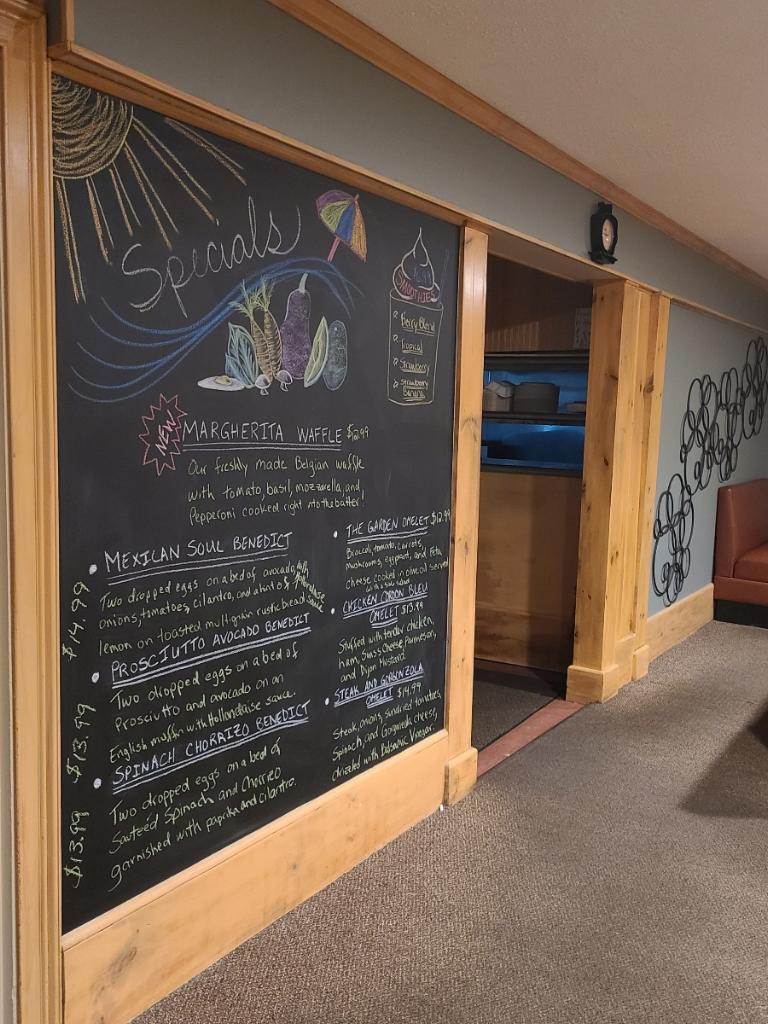 Specials
SMOOTHIE
Berry Blend
Tropical
Strawberry
Strawberry
Banana
NEW
MARGHERITA WAFFLE $12.99
Our freshly made Belgian waffle
with tomato, basil, mozzarella, and
Pepperoni cooked right into the batter!
MEXICAN SOUL BENEDICT
Two dropped eggs on a bed of avocado,
onions, tomatoes, cilantro, and a hint of
lemon on toasted multigrain rustic bread
$14.99
PROSCIUTTO AVOCADO BENEDICT
Two dropped eggs on a bed of
Prosciutto and avocado on an
English muffin with Hollandaise sauce.
$13.99
SPINACH CHORRIZO BENEDICT
Two dropped eggs on a bed of
Sauteéd Spinach and Chorrizo
garnished with paprika and cilantro.
$13.99
THE GARDEN OMELET $12.99
Broccoli, tomato, carrots,
mushrooms, eggplant, and Feta
cheese cooked in olive oil served
with a side salad
CHICKEN CORDON BLEU
OMELET $13.99
Stuffed with tender chicken,
ham, Swiss Cheese, Parmesan,
and Dijon Mustard
STEAK AND GORGONZOLA
OMELET $14.99
Steak, onions, sundried tomatoes,
Spinach, and Gorgonzola cheese,
drizzled with Balsamic Vinegar.